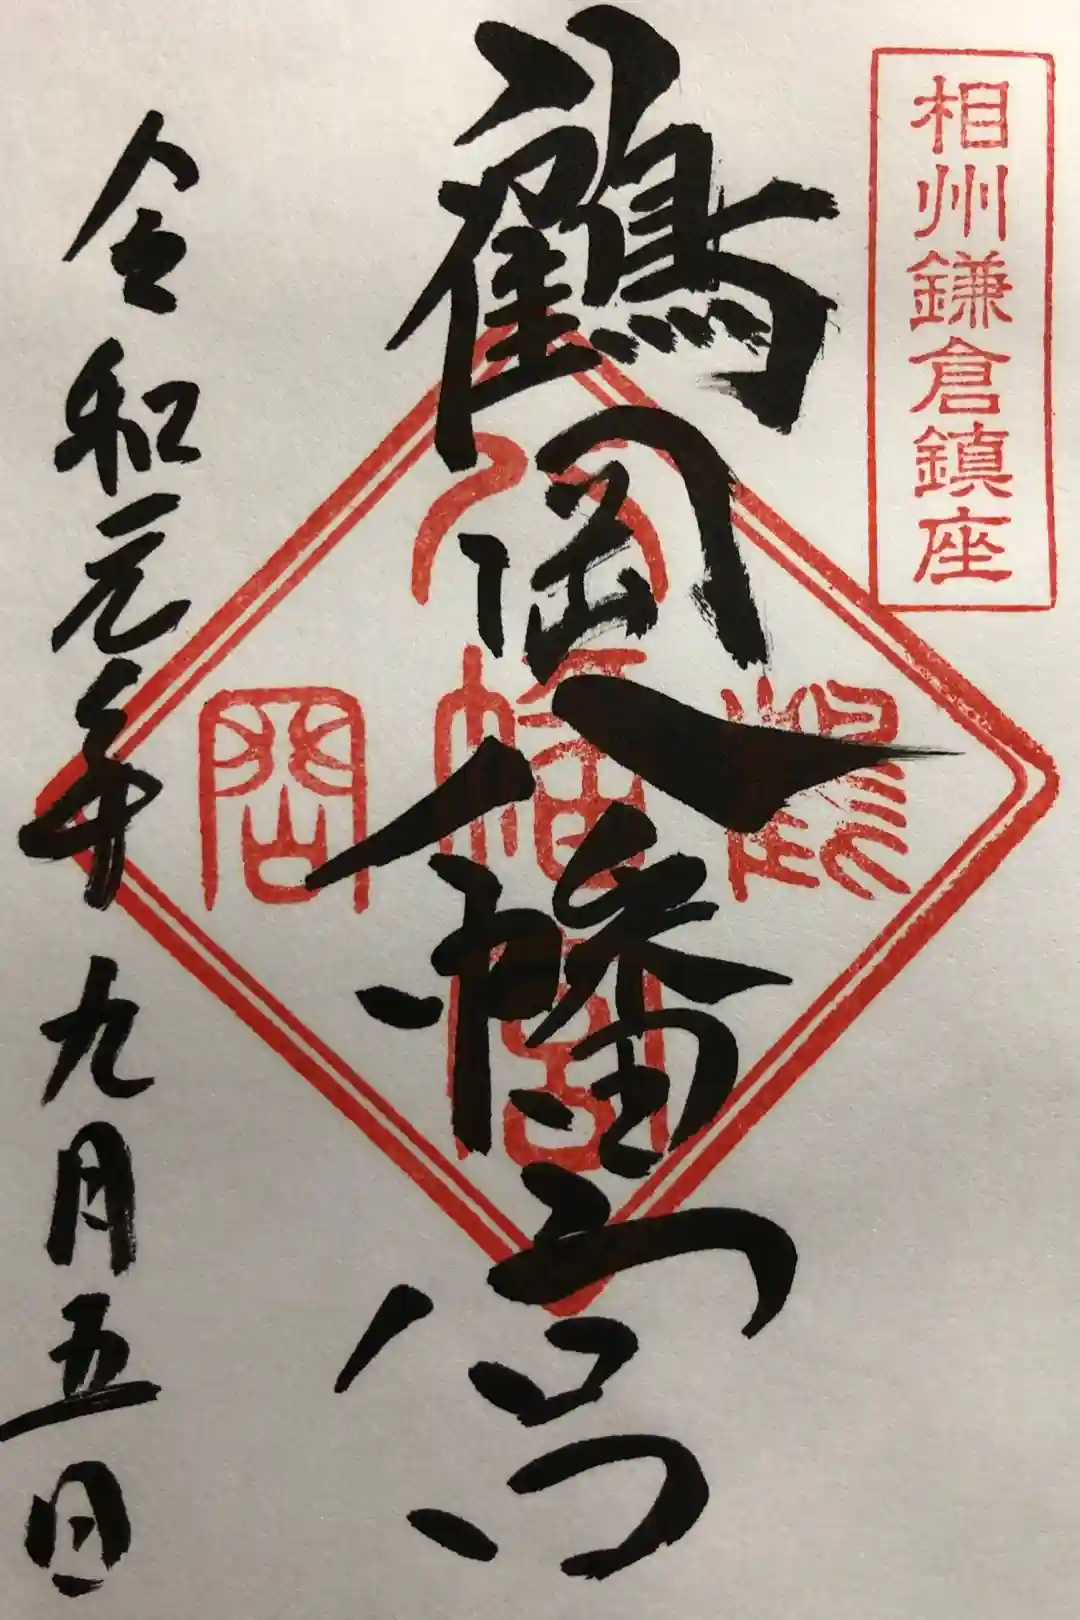 相州鎌倉鎮座
鶴岡八幡宮
鶴
八幡宮
岡
令和元年九月五日